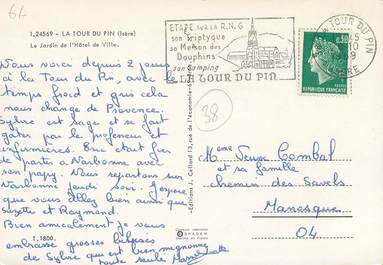 1.24569 - LA TOUR DU PIN (Isère)
Le Jardin de l'Hôtel de Ville.
Nous voici depuis 2 jours
à la Tour du Pin, avec le
temps froid et gris cela
nous change de Provence.
Sylvie est sage et se fait
gâter par le professeur et
infirmières. Eric était fier
de partir à Narbonne avec
son papy. Nous repartons sur
Narbonne jeudi soir. J'espère
que vous allez bien ainsi que
Suzette et Raymond.
Bien amicalement je vous
embrasse grosses bises
de Sylvie qui est bien mignonne
toute seule
T. 1800.
Editions J. Cellard
ETAPE SUR LA R.N.6
son Triptyque
sa Maison des
Dauphins
son Camping
LA TOUR DU PIN
LA TOUR DU PIN
ISERE
0,30
REPUBLIQUE FRANÇAISE
38
Mme Veuve Combal
et sa famille
chemin des Savels
Manosque
04